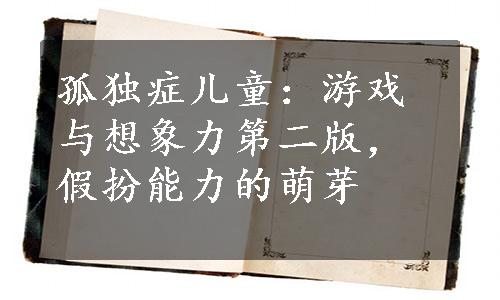 孤独症儿童：游戏
与想象力第二版，
假扮能力的萌芽